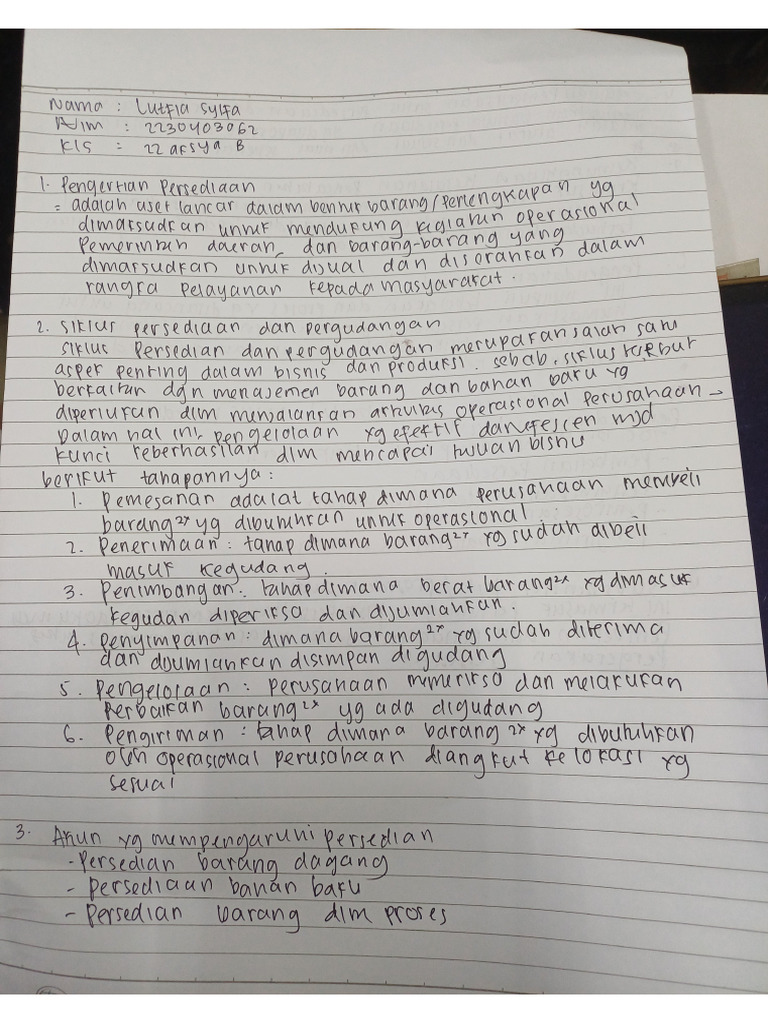 Nama : Lutfia Sylfa
Nim : 2230403062
Kls : 22 aksya B
1. Pengertian Persediaan
= adalah aset lancar dalam bentuk barang/perlengkapan yg
dimaksudkan untuk mendukung kegiatan operasional
Pemerintah daerah, dan barang-barang yang
dimaksudkan untuk dijual dan diserahkan dalam
rangka pelayanan kepada masyarakat.
2. Siklus persediaan dan pergudangan
Siklus Persedian dan pergudangan merupakan salah satu
aspek penting dalam bisnis dan produksi. sebab, siklus terkbut
berkaitan dgn menajemen barang dan bahan baku yg
diperlukan dlm menjalankan aktivitas operasional perusahaan
Dalam hal ini, pengelolaan yg efektif dan efesien mjd
kunci keberhasilan dlm mencapai tujuan bisnis
berikut tahapannya :
1. Pemesanan adalat tahap dimana perusahaan membeli
barang2x yg dibutuhkan untuk operasional
2. Penerimaan : tahap dimana barang2x yg sudah dibeli
masuk kegudang.
3. Penimbangan : tahap dimana berat barang2x yg dimasuk
kegudan diperiksa dan dijumlahkan.
4. penyimpanan : dimana barang2x yg sudah diterima
dan djumlahkan disimpan digudang
5. Pengelolaan : perusahaan memeriksa dan melakukan
Perbaikan barang2x yg ada digudang
6. Pengiriman : tahap dimana barang2x yg dibutuhkan
oleh operasional perusahaan diangkut ke lokasi yg
sesuai
3. Akun yg mempengaruhi persedian
- Persedian barang dagang
- Persediaan bahan baku
- Persedian barang dlm proses